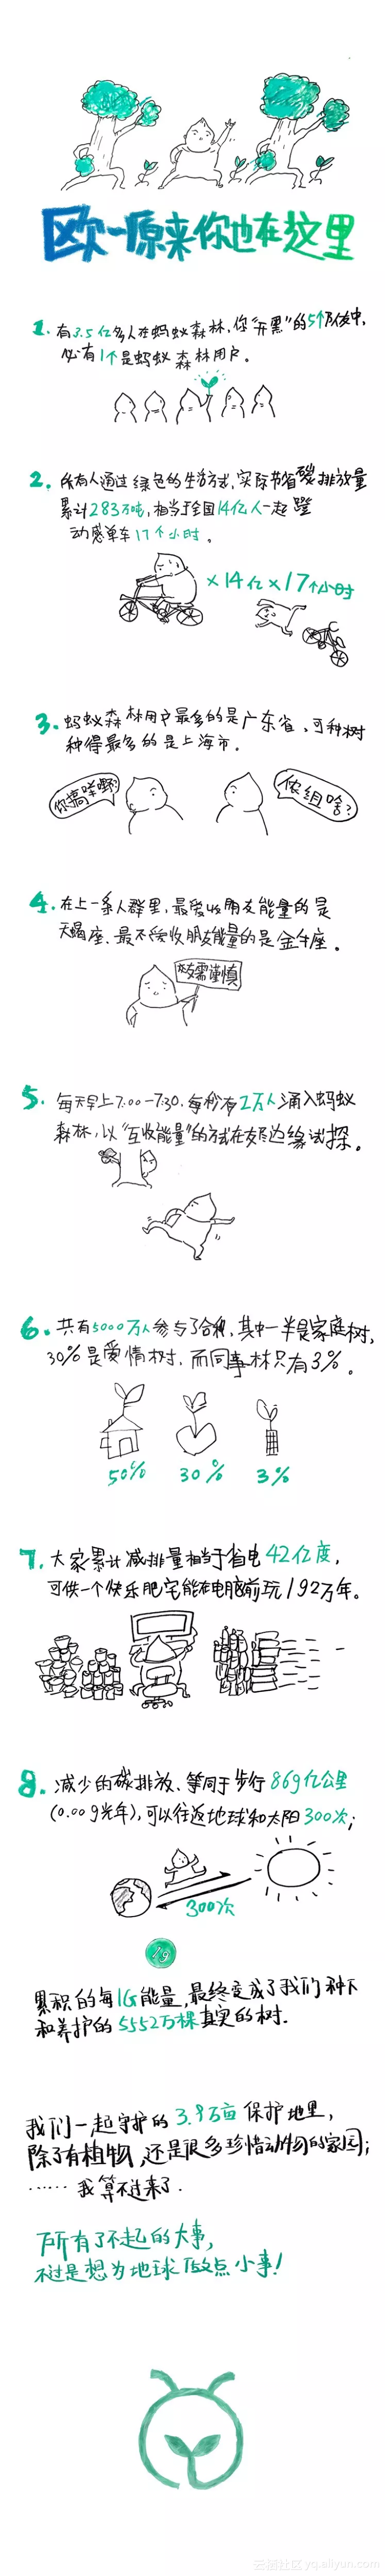 欧一原来你也在这里
1. 有3.5亿多人在蚂蚁森林，你“开黑”的5个队友中，
必有1个是蚂蚁森林用户。
2. 所有人通过绿色的生活方式，实际节省碳排放量
累计283万吨，相当于全国14亿人一起蹬
动感单车17个小时。
×14亿×17个小时
3. 蚂蚁森林用户最多的是广东省、可种树
种得最多的是上海市。
你搞咩嘢?
侬组啥?
4. 在上一条人群里，最爱收朋友能量的是
天蝎座、最不爱收朋友能量的是金牛座。
交友需谨慎
5. 每天早上7:00-7:30，每秒有2万人涌入蚂蚁
森林，以“互收能量”的方式在友尽边缘试探。
6. 共有5000万人参与了合种，其中一半是家庭树，
30%是爱情树，而同事林只有3%。
50%
30%
3%
7. 大家累计减排量相当于省电42亿度，
可供一个快乐肥宅能在电脑前玩192万年。
8. 减少的碳排放、等同于步行869亿公里
(0.009光年)，可以往返地球和太阳300次；
300次
1g
累积的每1G能量，最终变成了我们种下
和养护的5552万棵真实的树.
我们一起守护的3.9万亩保护地里，
除了有植物，还是很多珍惜动物的家园；
……我算不过来了.
所有了不起的大事，
不过是想为地球做点小事！
云栖社区 yq.aliyun.com